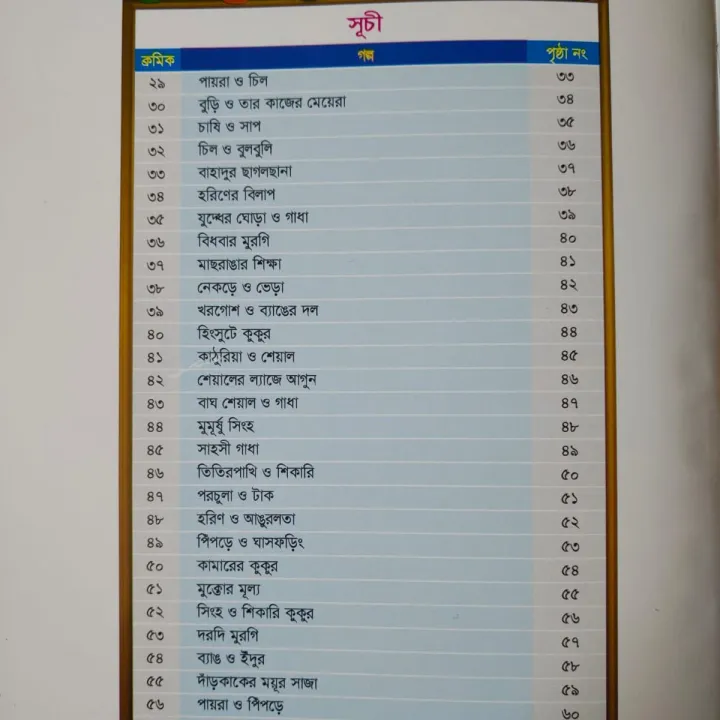 সূচী
ক্রমিক গল্প পৃষ্ঠা নং
২৯ পায়রা ও চিল ৩৩
৩০ বুড়ি ও তার কাজের মেয়েরা ৩৪
৩১ চাষি ও সাপ ৩৫
৩২ চিল ও বুলবুলি ৩৬
৩৩ বাহাদুর ছাগলছানা ৩৭
৩৪ হরিণের বিলাপ ৩৮
৩৫ যুদ্ধের ঘোড়া ও গাধা ৩৯
৩৬ বিধবার মুরগি ৪০
৩৭ মাছরাঙার শিক্ষা ৪১
৩৮ নেকড়ে ও ভেড়া ৪২
৩৯ খরগোশ ও ব্যাঙের দল ৪৩
৪০ হিংসুটে কুকুর ৪৪
৪১ কাঠুরিয়া ও শেয়াল ৪৫
৪২ শেয়ালের ল্যাজে আগুন ৪৬
৪৩ বাঘ শেয়াল ও গাধা ৪৭
৪৪ মুমূর্ষু সিংহ ৪৮
৪৫ সাহসী গাধা ৪৯
৪৬ তিতিরপাখি ও শিকারি ৫০
৪৭ পরচুলা ও টাক ৫১
৪৮ হরিণ ও আঙুরলতা ৫২
৪৯ পিঁপড়ে ও ঘাসফড়িং ৫৩
৫০ কামারের কুকুর ৫৪
৫১ মুক্তোর মূল্য ৫৫
৫২ সিংহ ও শিকারি কুকুর ৫৬
৫৩ দরদি মুরগি ৫৭
৫৪ ব্যাঙ ও ইঁদুর ৫৮
৫৫ দাঁড়কাকের ময়ূর সাজা ৫৯
৫৬ পায়রা ও পিঁপড়ে ৬০